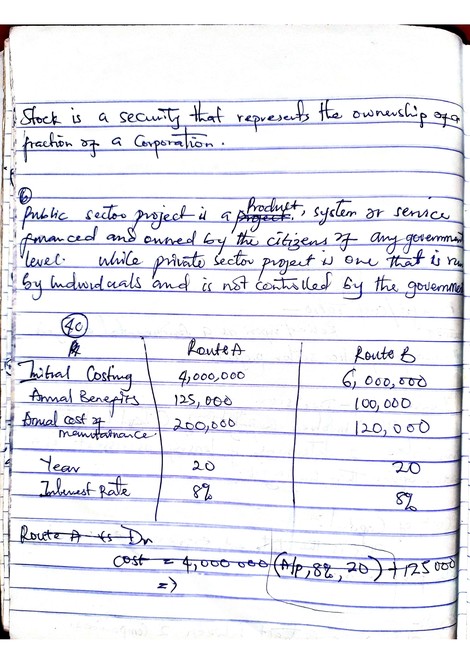 Stock is a security that represents the ownership of a
fraction of a Corporation.
6
Public sector project is a project Product, system or service
financed and owned by the citizens of any government
level. while private sector project is one that is run
by individuals and is not controlled by the government
4c
Route A Route B
Initial Costing 4,000,000 6,000,000
Annual Benefits 125,000 100,000
Annual cost of 200,000 120,000
maintainance
Year 20 20
Interest Rate 8% 8%
Route A is Dn
cost = 4,000 000 (A/p, 8%, 20) + 125 000
=>